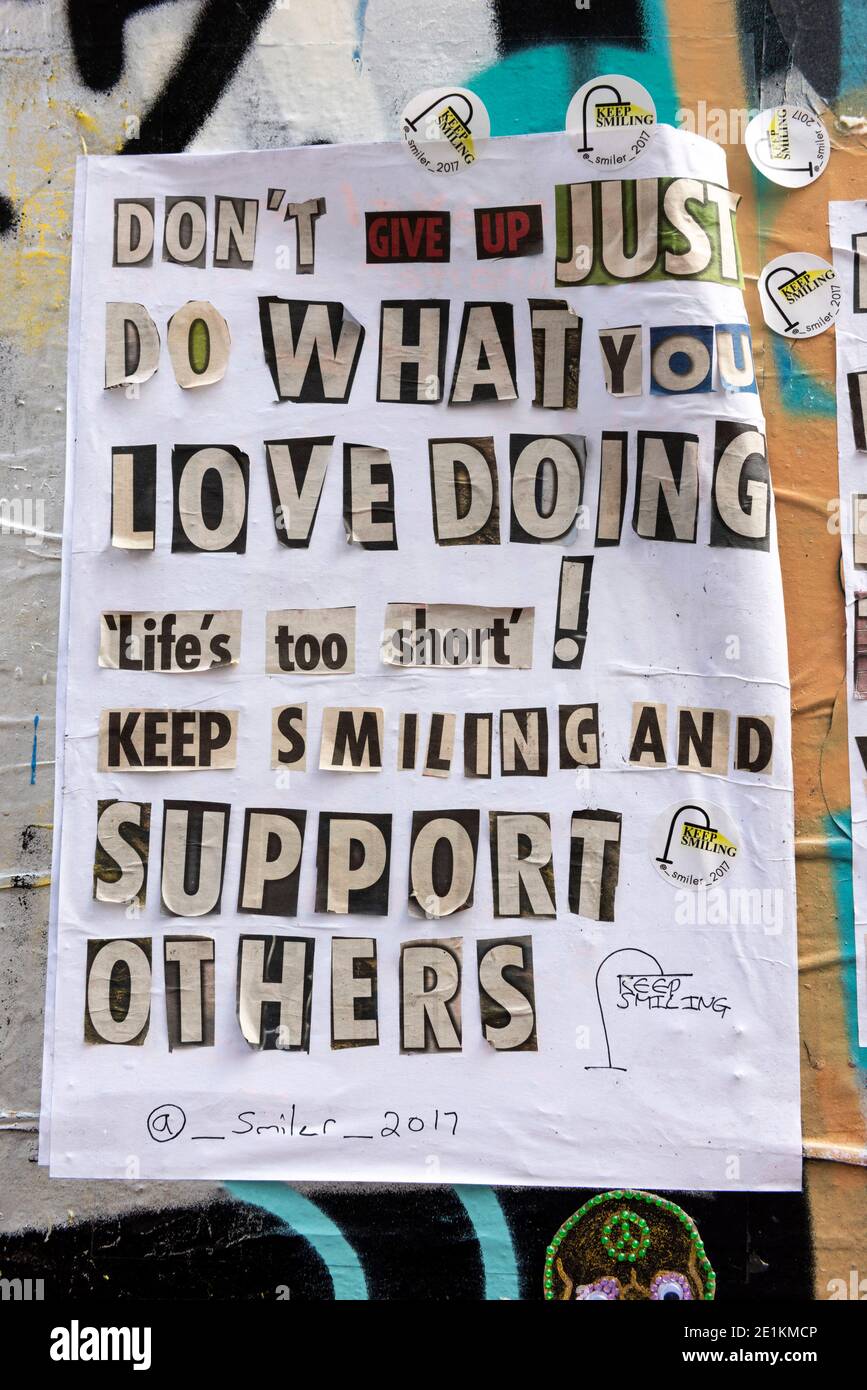 KEEP
SMILING
@_smiler_2017
KEEP
SMILING
@_smiler_2017
KEEP
SMILING
@_smiler_2017
KEEP
SMILING
@_smiler_2017
DON'T GIVE UP JUST
DO WHAT YOU
LOVE DOING
'Life's too short' !
KEEP SMILING AND
SUPPORT
KEEP
SMILING
@_smiler_2017
OTHERS
KEEP
SMILING
@_Smiler_2017
alamy
alamy
Image ID: 2E1KMCP
www.alamy.com